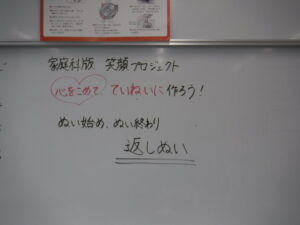 家庭科版 笑顔プロジェクト
心をこめて、ていねいに作ろう!
ぬい始め、ぬい終わり
返しぬい